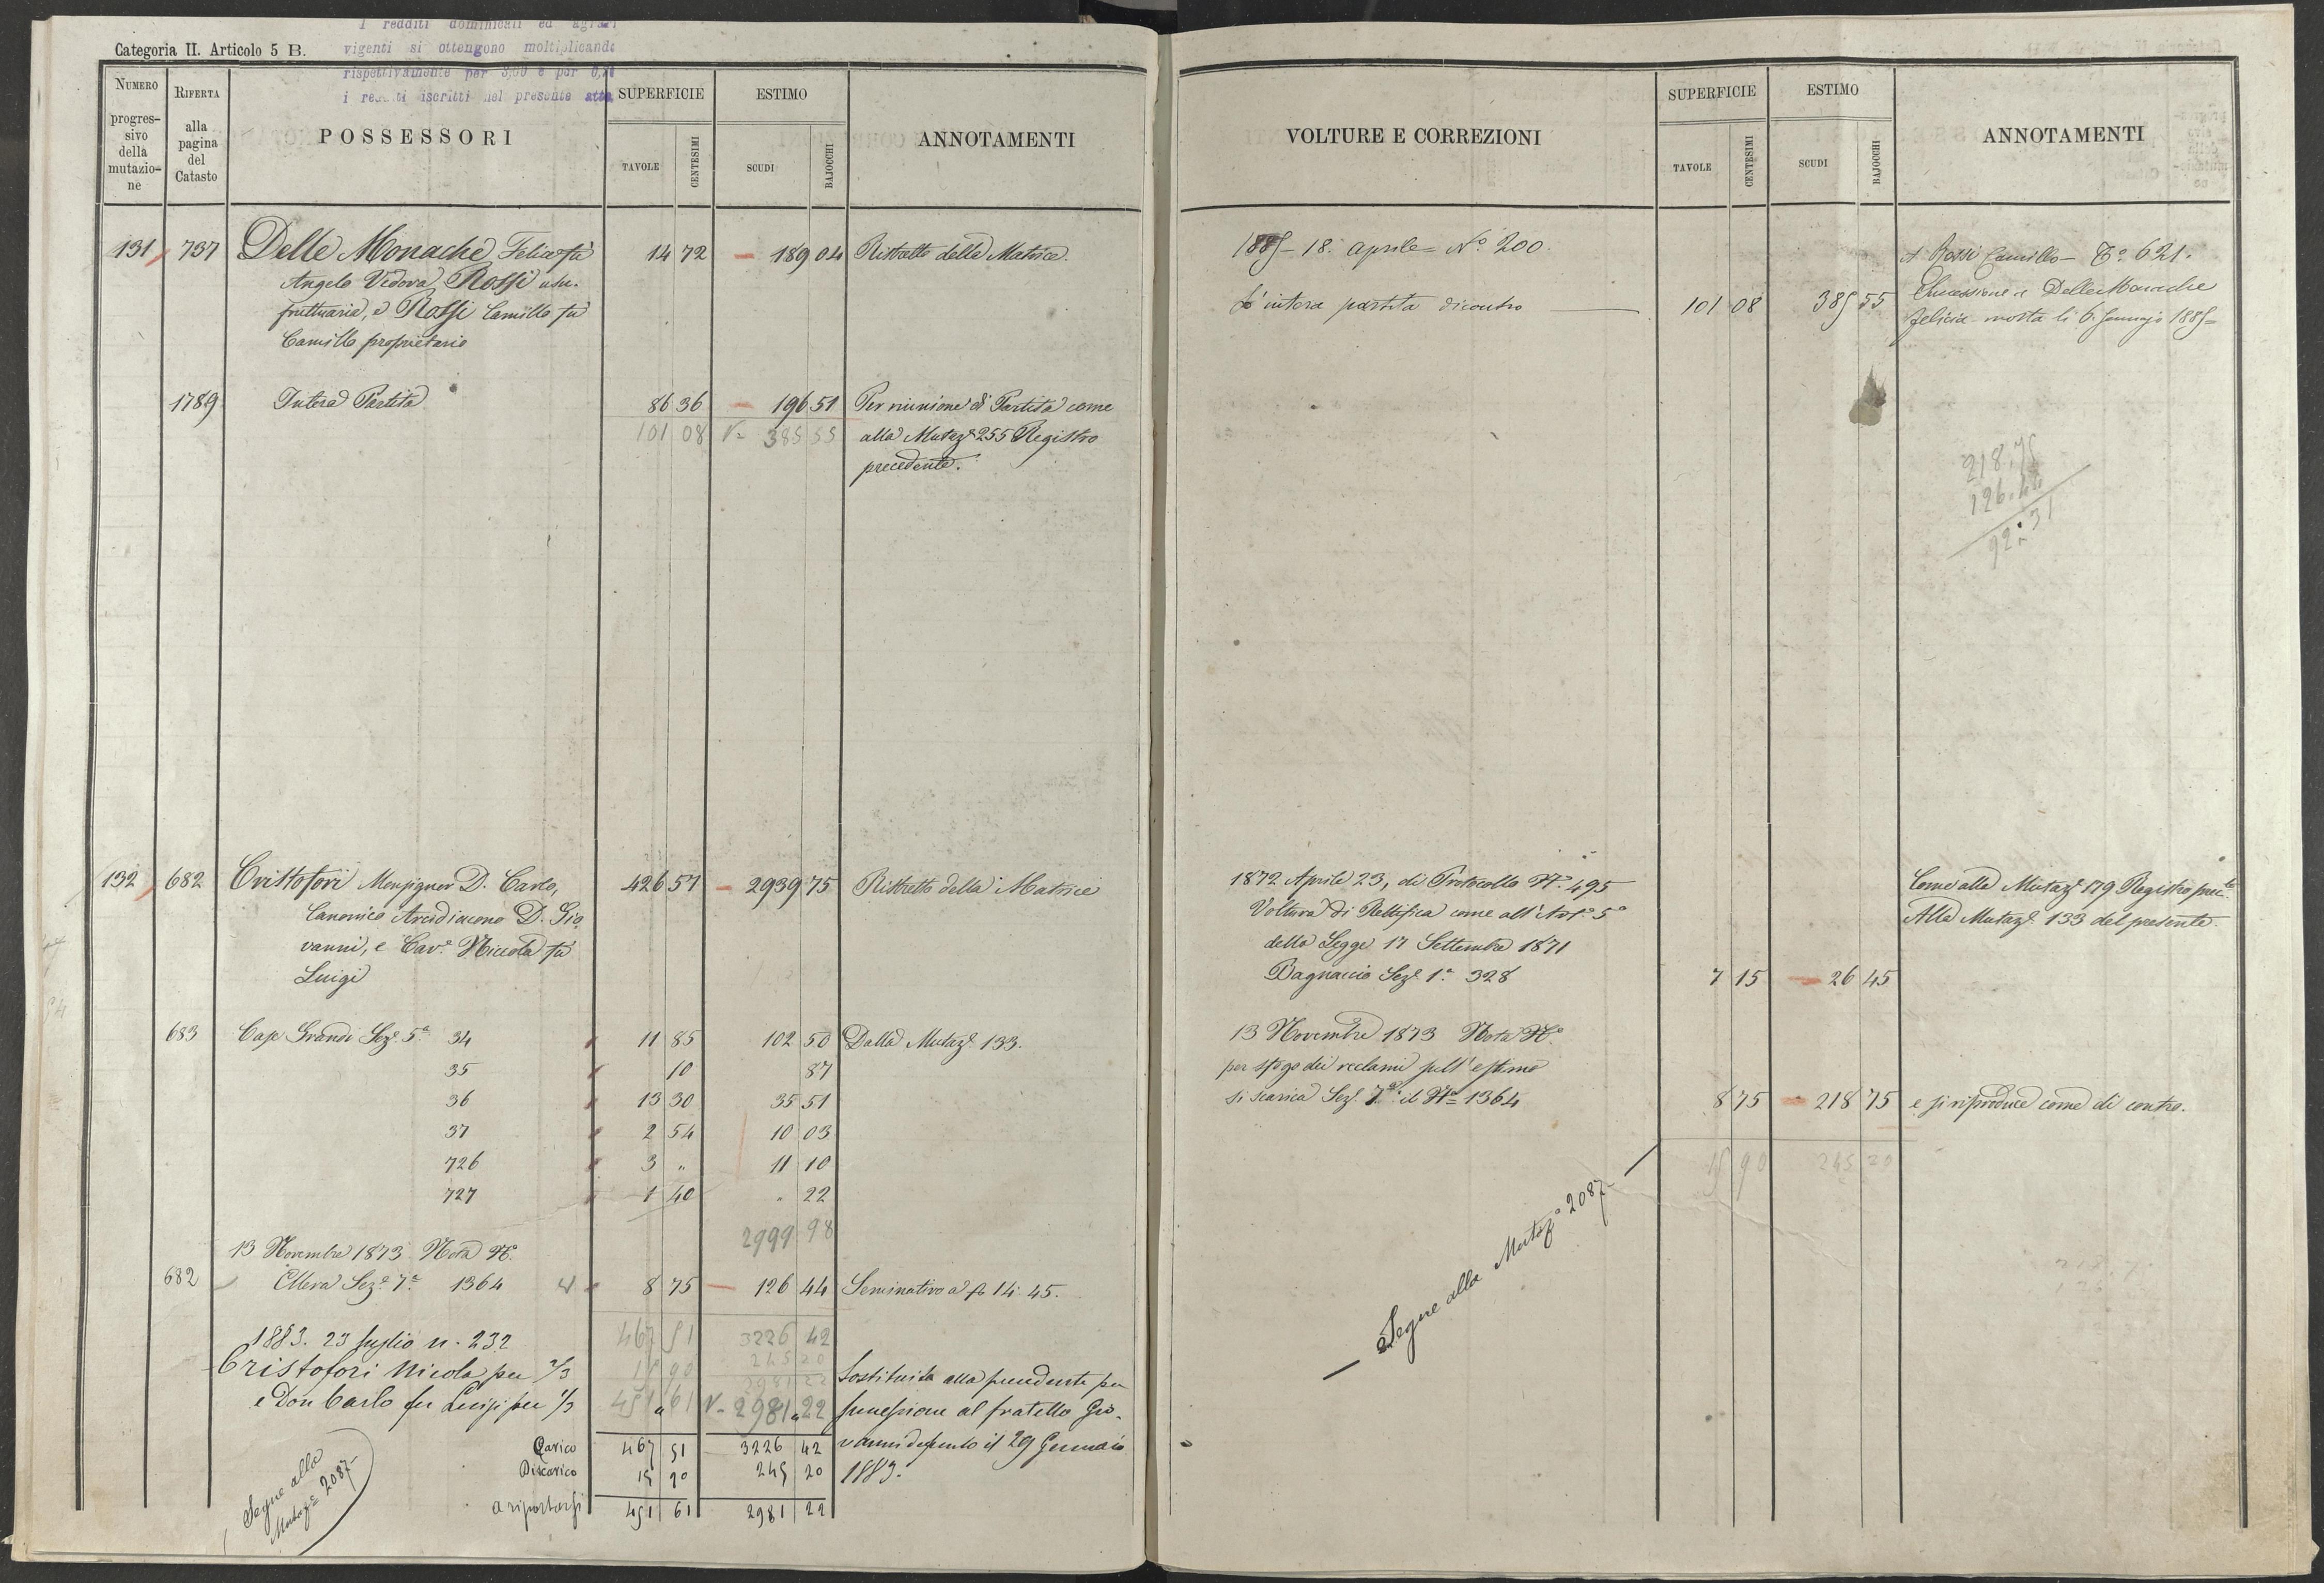 I redditi dominicali ed agrari
vigenti si ottengono moltiplicando
rispettivamente per 3,60 e per 0,70
i redditi iscritti nel presente atto.
Categoria II. Articolo 5 B.
NUMERO progressivo della mutazione
RIFERTA alla pagina del Catasto
POSSESSORI
SUPERFICIE
TAVOLE CENTESIMI
ESTIMO
SCUDI BAJOCCHI
ANNOTAMENTI
131 737 Delle Monache Felice fu 14 72 189 04 Ristretto della Matrice.
Angelo Vedova Rossi usu-
fruttuaria, e Rossi Camillo fu
Camillo proprietario
1789 Intera Partita 86 36 196 51 Per riunione di Partita come
101 08 V= 385 55 alla Mutaze 255 Registro
precedente.
132 682 Cristofori Monsignor D. Carlo, 426 57 2939 75 Ristretto della Matrice
Canonico Arcidiacono D. Gio
vanni, e Cave Niccola fu
Luigi
683 Case Grandi Seze 5a 34 11 85 102 50 Dalla Mutaze 133.
35 10 87
36 13 30 35 51
37 2 54 10 03
726 3 " 11 10
727 1 40 " 22
2999 98
13 Novembre 1873 Nota No
682 Ellera Seze 7a 1364 8 75 126 44 Seminativo a 14. 45.
1883. 23 luglio n. 232 467 51 3226 42
15 90 245 20
2981 22
Cristofori Nicola per 2/3 Sostituita alla precedente per
e Don Carlo fu Luigi per 1/3 451 " 61 V= 2981 " 22 successione al fratello Gio-
Carico 467 51 3226 42 vanni defunto il 29 Gennaio
Discarico 15 90 245 20 1883.
a riportarsi 451 61 2981 22
Segue alla
Mutaze 2087
VOLTURE E CORREZIONI
SUPERFICIE
TAVOLE CENTESIMI
ESTIMO
SCUDI BAJOCCHI
ANNOTAMENTI
1885 - 18. aprile = No 200. A Rossi Camillo - To 621.
L'intera partita dicontro 101 08 385 55 Successione a Delle Monache
Felicia morta li 6. Gennajo 1885=
218,75
126.44
92:31
1872 Aprile 23, di Protocollo No 495 Come alla Mutaze 179 Registro precte
Voltura di Rettifica come all'Arto 5o Alla Mutaze 133 del presente.
della Legge 17 Settembre 1871
Bagnaccio Seze 1a 328 7 15 26 45
13 Novembre 1873 Nota No
per sfogo dei reclami sull'estimo
si scarica Seze 7a il No 1364 8 75 218 75 e si riproduce come di contro.
15 90 245 20
Segue alla Mutaze 2087